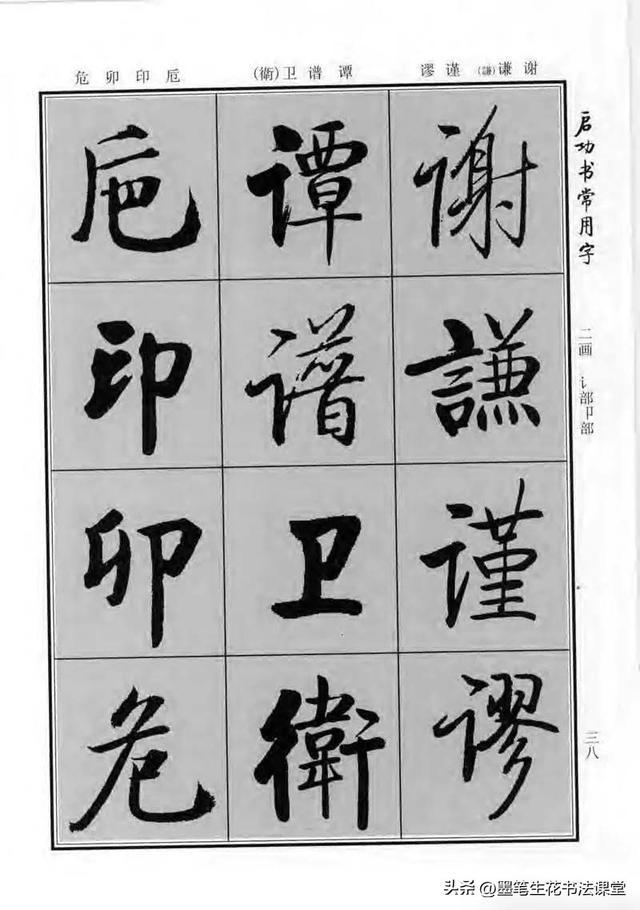 启功书常用字
二画 讠部卩部
三八
谢谦(謙)谨谬
谭谱卫(衛)
卮印卯危
谢
謙
谨
谬
谭
谱
卫
衛
巵
印
卯
危
头条 @墨笔生花书法课堂